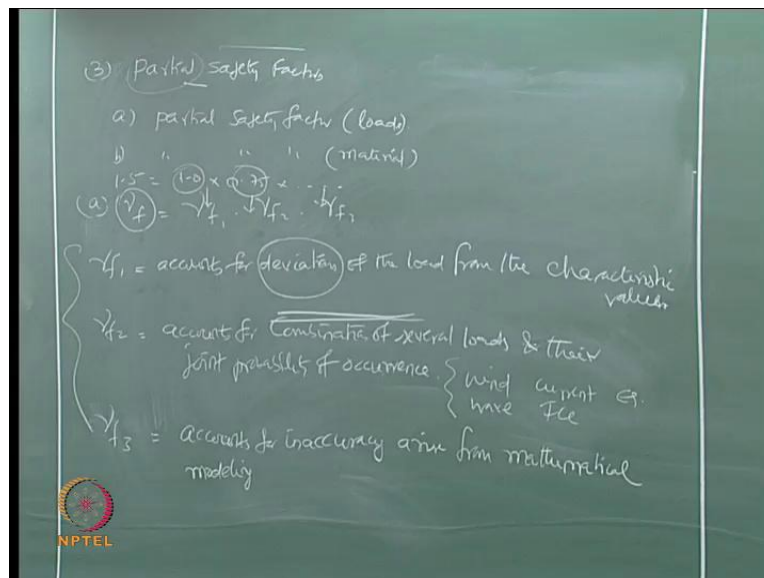 (3) Partial Safety Factors
a) partial safety factor (loads).
b) " " " (material)
1.5 = 1.0 × 0.75 × . . .
(a) γf = γf1 . γf2 . γf3
γf1 = accounts for deviation of the load from the characteristic
values
γf2 = account for Combination of several loads & their
joint probability of occurrence. { wind current
wave Ice
γf3 = accounts for inaccuracy arise from mathematical
modeling
NPTEL